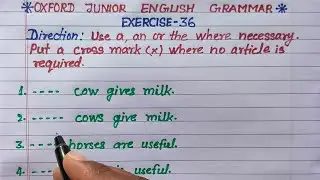 *OXFORD JUNIOR ENGLISH GRAMMAR*
EXERCISE-36
Direction: Use a, an or the where necessary.
Put a cross mark (x) where no article is
required.
1. ---- cow gives milk.
2. ----- cows give milk.
3. ---- horses are useful.
4. ---- is useful.